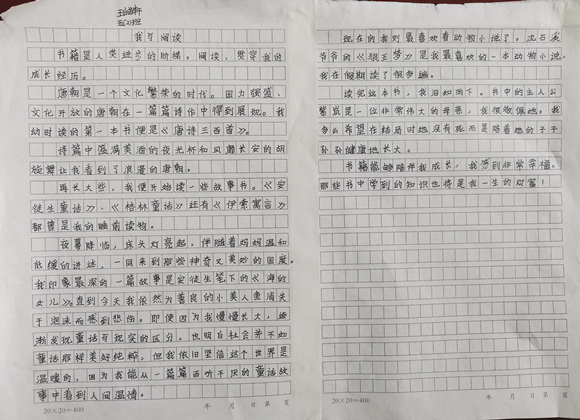 五(2)班
我与阅读
书籍是人类进步的阶梯。阅读，贯穿我的
成长经历。
唐朝是一个文化繁荣的时代。国力强盛、
文化开放的唐朝在一篇篇诗作中得到展现。我
幼时读的第一本书便是《唐诗三百首》。
诗篇中盛满美酒的夜光杯和风靡长安的胡
旋舞让我看到了浪漫的唐朝。
再长大些，我便开始读一些故事书。《安
徒生童话》、《格林童话》还有《伊索寓言》
都曾是我的睡前读物。
夜幕降临，床头灯亮起，伴随着妈妈温和
低缓的讲述，一同来到那些神奇又美妙的国度。
我印象最深的一篇故事是安徒生笔下的《海的
女儿》。直到今天我依然为善良的小美人鱼消失
于泡沫而感到悲伤。即使因为我慢慢长大，逐
渐发现童话与现实的区分，也明白社会并不如
童话那样美好纯粹，但我依旧坚信这个世界是
温暖的，因为我能从一篇篇百听不厌的童话故
事中看到人间温情。
20×20=400 年 月 日 第 页
现在的我则最喜欢看动物小说了。沈石溪
爷爷的《狼王梦》是我最喜欢的一本动物小说。
我在假期读了很多遍。
读完这本书，我泪如雨下。书中的主人公
紫岚是一位非常伟大的母亲，我很敬佩她。我
多么希望在结局时她没有死而是陪着她的子子
孙孙健康地长大。
书籍能够陪伴我成长，我感到非常幸福。
那些书中学到的知识也将是我一生的财富！
20×20=400 年 月 日 第 页